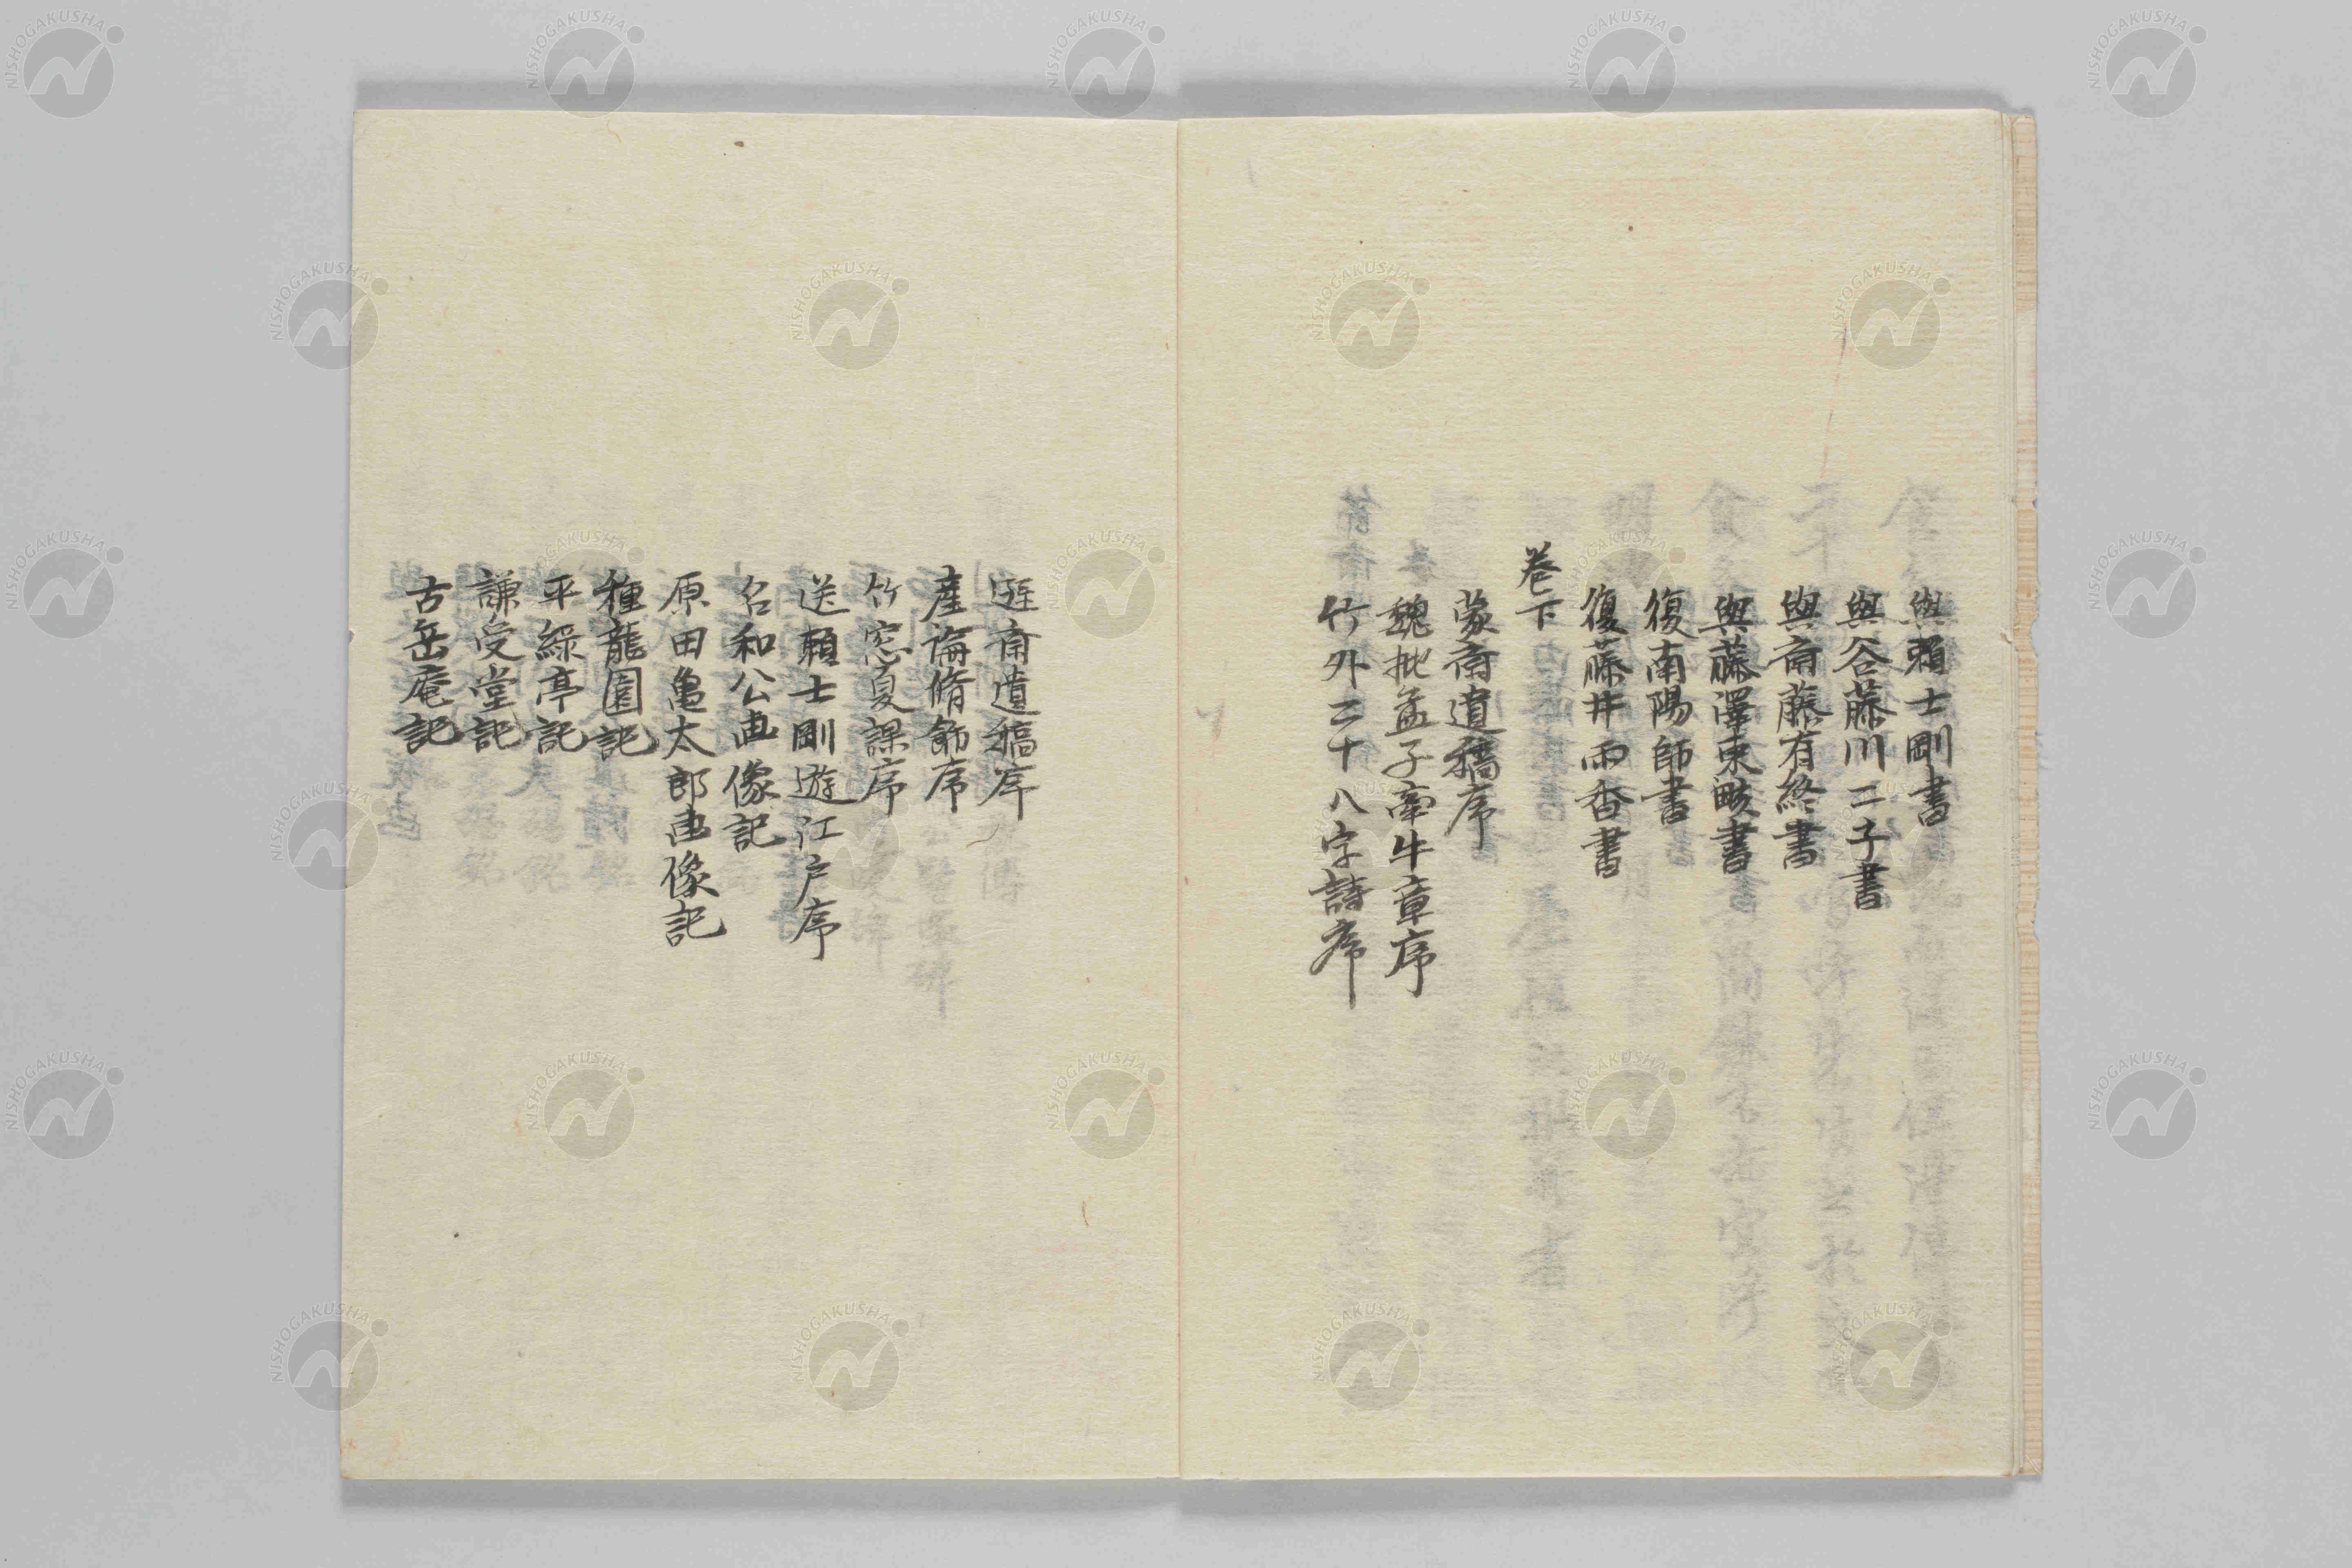 與賴士剛書
與谷藤川二子書
與斎藤有終書
與藤澤東畡書
復南陽師書
復藤井雨香書
巻下
蒙斎遺稿序
魏批孟子牽牛章序
竹外二十八字詩序
遊斎遺稿序
産論脩飾序
竹窓夏課序
送賴士剛遊江戸序
名和公画像記
原田亀太郎画像記
種龍園記
平綠亭記
謙受堂記
古岳庵記